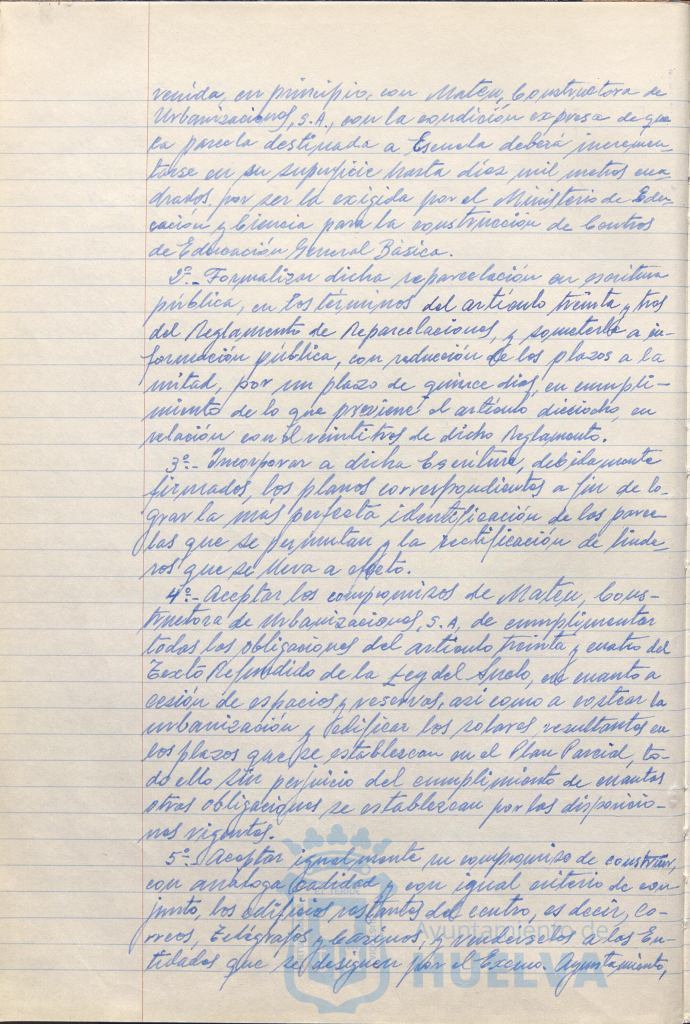 venida, en principio, con Mateu, Constructora de
Urbanizaciones, S.A., con la condición expresa de que
la parcela destinada a Escuela deberá incremen-
tarse en su superficie hasta diez mil metros cua
drados, por ser la exigida por el Ministerio de Edu-
cación y Ciencia para la construcción de Centros
de Educación General Básica.
2º.- Formalizar dicha reparcelación en escritura
pública, en los términos del artículo treinta y tres
del Reglamento de Reparcelaciones, y someterla a in-
formación pública, con reducción de los plazos a la
mitad, por un plazo de quince días, en cumpli-
miento de lo que previene el artículo dieciocho, en
relación con el veintitres de dicho Reglamento.
3º.- Incorporar a dicha Escritura, debidamente
firmados, los planos correspondientes a fin de lo-
grar la más perfecta identificación de las parce
las que se permutan y la rectificación de linde-
ros que se lleva a efecto.
4º.- Aceptar los compromisos de Mateu, Cons-
tructora de Urbanizaciones, S.A, de cumplimentar
todas las obligaciones del artículo treinta y cuatro del
Texto Refundido de la Ley del Suelo, en cuanto a
cesión de espacios y reservas, así como a costear la
urbanización y edificar los solares resultantes en
los plazos que se establezcan en el Plan Parcial, to-
do ello sin perjuicio del cumplimiento de cuantas
otras obligaciones se establezcan por las disposicio-
nes vigentes.
5º.- Aceptar igualmente su compromiso de construir,
con análoga calidad y con igual criterio de con
junto, los edificios restantes del centro, es decir, Co-
rreos, Telégrafos y Casinos, y vendérselos a las En-
tidades que se designen por el Excmo. Ayuntamiento,
Ayuntamiento de
HUELVA